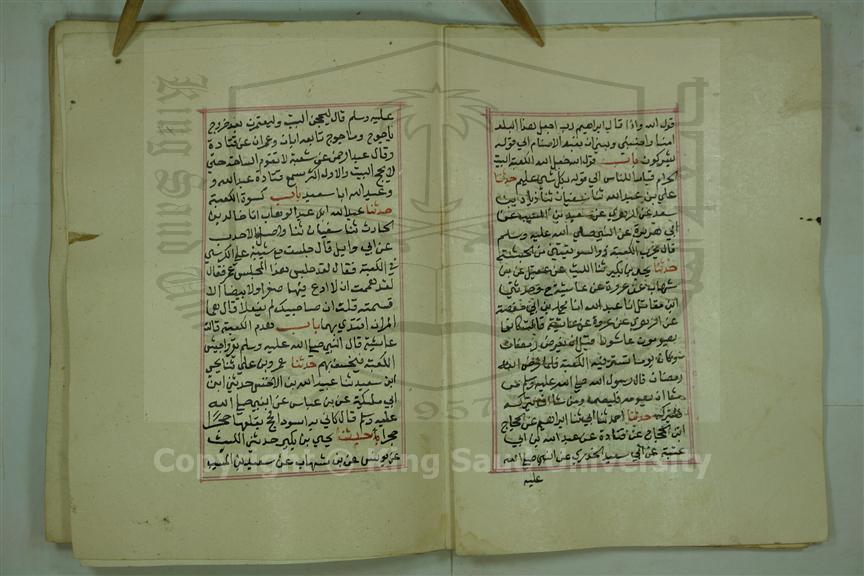 قوله الله واذا قال ابراهيم رب اجعل هذا البلد
امنا واجنبني وبني ان نعبد الاصنام الي قوله
يشكرون باب قوله الله جعل الله الكعبة البيت
الحرام قياما للناس الي قوله بكل شي عليم حدثنا
علي بن عبد الله ثنا سفيان ثنا زياد بن
سعد عن الزهري عن سعيد بن المسيب عن
ابي هريرة عن النبي صلي الله عليه وسلم
قال يخرب الكعبة ذو السويقتين من الحبشة
حدثنا يحيي بن بكير ثنا الليث عن عقيل عن بن
شهاب عن عروة عن عائشة ح وحدثني
ابن مقاتل انا عبد الله انا محمد بن ابي حفصة
عن الزهري عن عروة عن عائشة قالت كانوا
يصومون عاشورا قبل ان يفرض رمضان
وكان يوما تستر فيه الكعبة فلما فرض الله
رمضان قال رسول الله صلي الله عليه وسلم من
شا ان يصومه فليصمه ومن شا ان يتركه
فليتركه حدثنا احمد ثنا ابي ثنا ابراهيم عن الحجاج
ابن الحجاج عن قتادة عن عبد الله بن ابي
عتبة عن ابي سعيد الخدري عن النبي صلي الله
عليه
عليه وسلم قال ليحجن البيت وليعتمرن بعد خروج
ياجوج وماجوج تابعه ابان وعمران عن قتادة
وقال عبد الرحمن عن شعبة لا تقوم الساعة حتي
لا يحج البيت والاول اكثر سمع قتادة عبد الله و
وعبد الله ابا سعيد باب كسوة الكعبة
حدثنا عبد الله ابن عبد الوهاب انا خالد بن
الحارث ثنا سفيان ثنا واصل الاحدب
عن ابي وايل قال جلست مع شيبة علي الكرسي
في الكعبة فقال لقد جلس هذا المجلس عمر فقال
لقد هممت ان لا ادع فيها صفرا ولا بيضا الا
قسمته قلت ان صاحبيك لم يفعلا قال هما
المران اقتدي بهما باب هدم الكعبة قالت
عائشة قال النبي صلي الله عليه وسلم يغزو جيش
الكعبة فيخسف بهم حدثنا عمرو بن علي ثنا يحيي
ابن سعيد ثنا عبيد الله بن الاخنس حدثني ابن
ابي مليكة عن بن عباس عن النبي صلي الله
عليه وسلم قال كاني به اسود افحج يقلعها حجرا
حجرا حدثنا يحيي بن بكير حدثني الليث
عن يونس عن بن شهاب عن سعيد بن المسيب
King Saud University
1957
Copyright © King Saud University